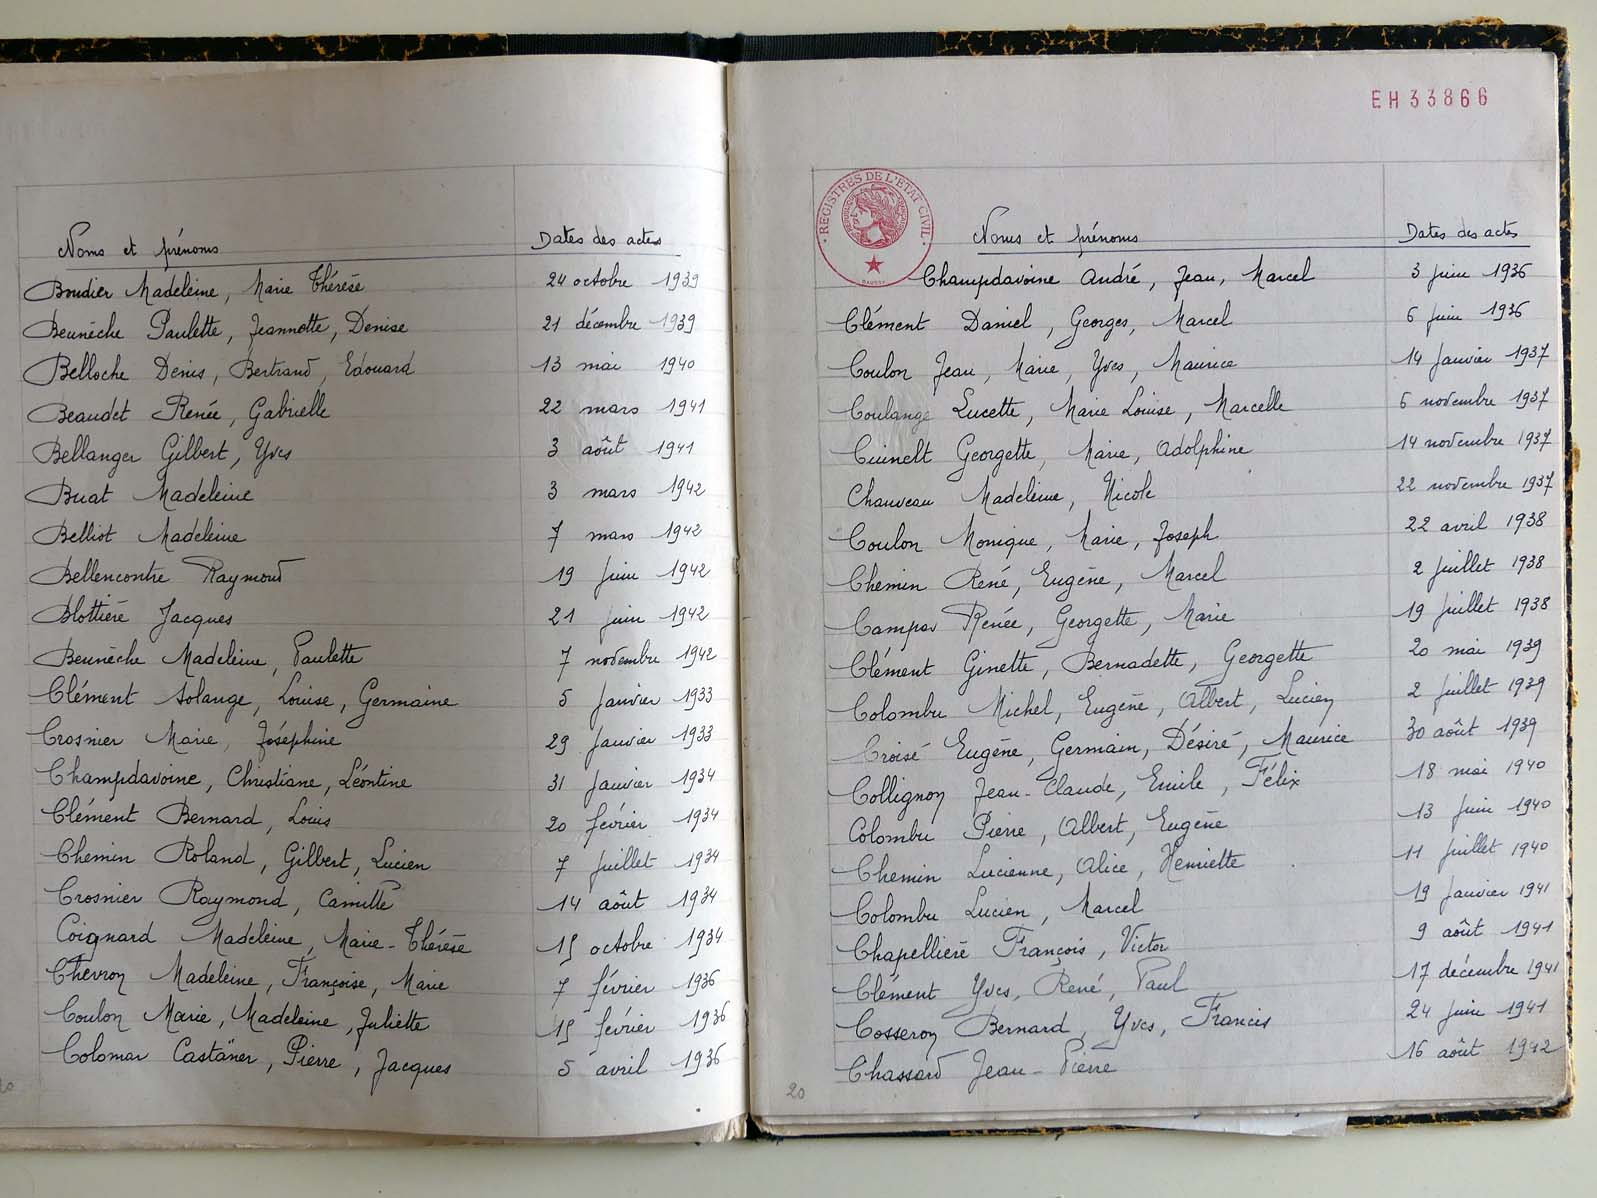 Noms et prénoms Dates des actes
Boudier Madeleine, Marie Thérèse 24 octobre 1939
Beunèche Paulette, Jeannette, Denise 21 décembre 1939
Belloche Denis, Bertrand, Edouard 13 mai 1940
Beaudet Renée, Gabrielle 22 mars 1941
Bellanger Gilbert, Yves 3 août 1941
Buat Madeleine 3 mars 1942
Belliot Madeleine 7 mars 1942
Bellencontre Raymond 19 juin 1942
Blottière Jacques 21 juin 1942
Beunèche Madeleine, Paulette 7 novembre 1942
Clément Solange, Louise, Germaine 5 janvier 1933
Crosnier Marie, Joséphine 29 janvier 1933
Champdavoine, Christiane, Léontine 31 janvier 1934
Clément Bernard, Louis 20 février 1934
Chemin Roland, Gilbert, Lucien 7 juillet 1934
Crosnier Raymond, Camille 14 août 1934
Coignard Madeleine, Marie-Thérèse 15 octobre 1934
Chevron Madeleine, Françoise, Marie 7 février 1936
Coulon Marie, Madeleine, Juliette 15 février 1936
Colomar Castäner, Pierre, Jacques 5 avril 1936
EH33866
REGISTRES DE L'ETAT CIVIL
Noms et prénoms Dates des actes
Champdavoine André, Jean, Marcel 3 juin 1936
Clément Daniel, Georges, Marcel 6 juin 1936
Coulon Jean, Marie, Yves, Maurice 14 janvier 1937
Coulange Lucette, Marie Louise, Marcelle 6 novembre 1937
Georgette, Marie, Adolphine 14 novembre 1937
Chauveau Madeleine, Nicole 22 novembre 1937
Coulon Monique, Marie, Joseph 22 avril 1938
Chemin René, Eugène, Marcel 2 juillet 1938
Campas Renée, Georgette, Marie 19 juillet 1938
Clément Ginette, Bernadette, Georgette 20 mai 1939
Colombu Michel, Eugène, Albert, Lucien 2 juillet 1939
Croisé Eugène, Germain, Désiré, Maurice 30 août 1939
Collignon Jean-Claude, Emile, Félix 18 mai 1940
Colombu Pierre, Albert, Eugène 13 juin 1940
Chemin Lucienne, Alice, Henriette 11 juillet 1940
Colombu Lucien, Marcel 19 janvier 1941
Chapellière François, Victor 9 août 1941
Clément Yves, René, Paul 17 décembre 1941
Cosseron Bernard, Yves, Francis 24 juin 1941
Chassard Jean-Pierre 16 août 1942
20